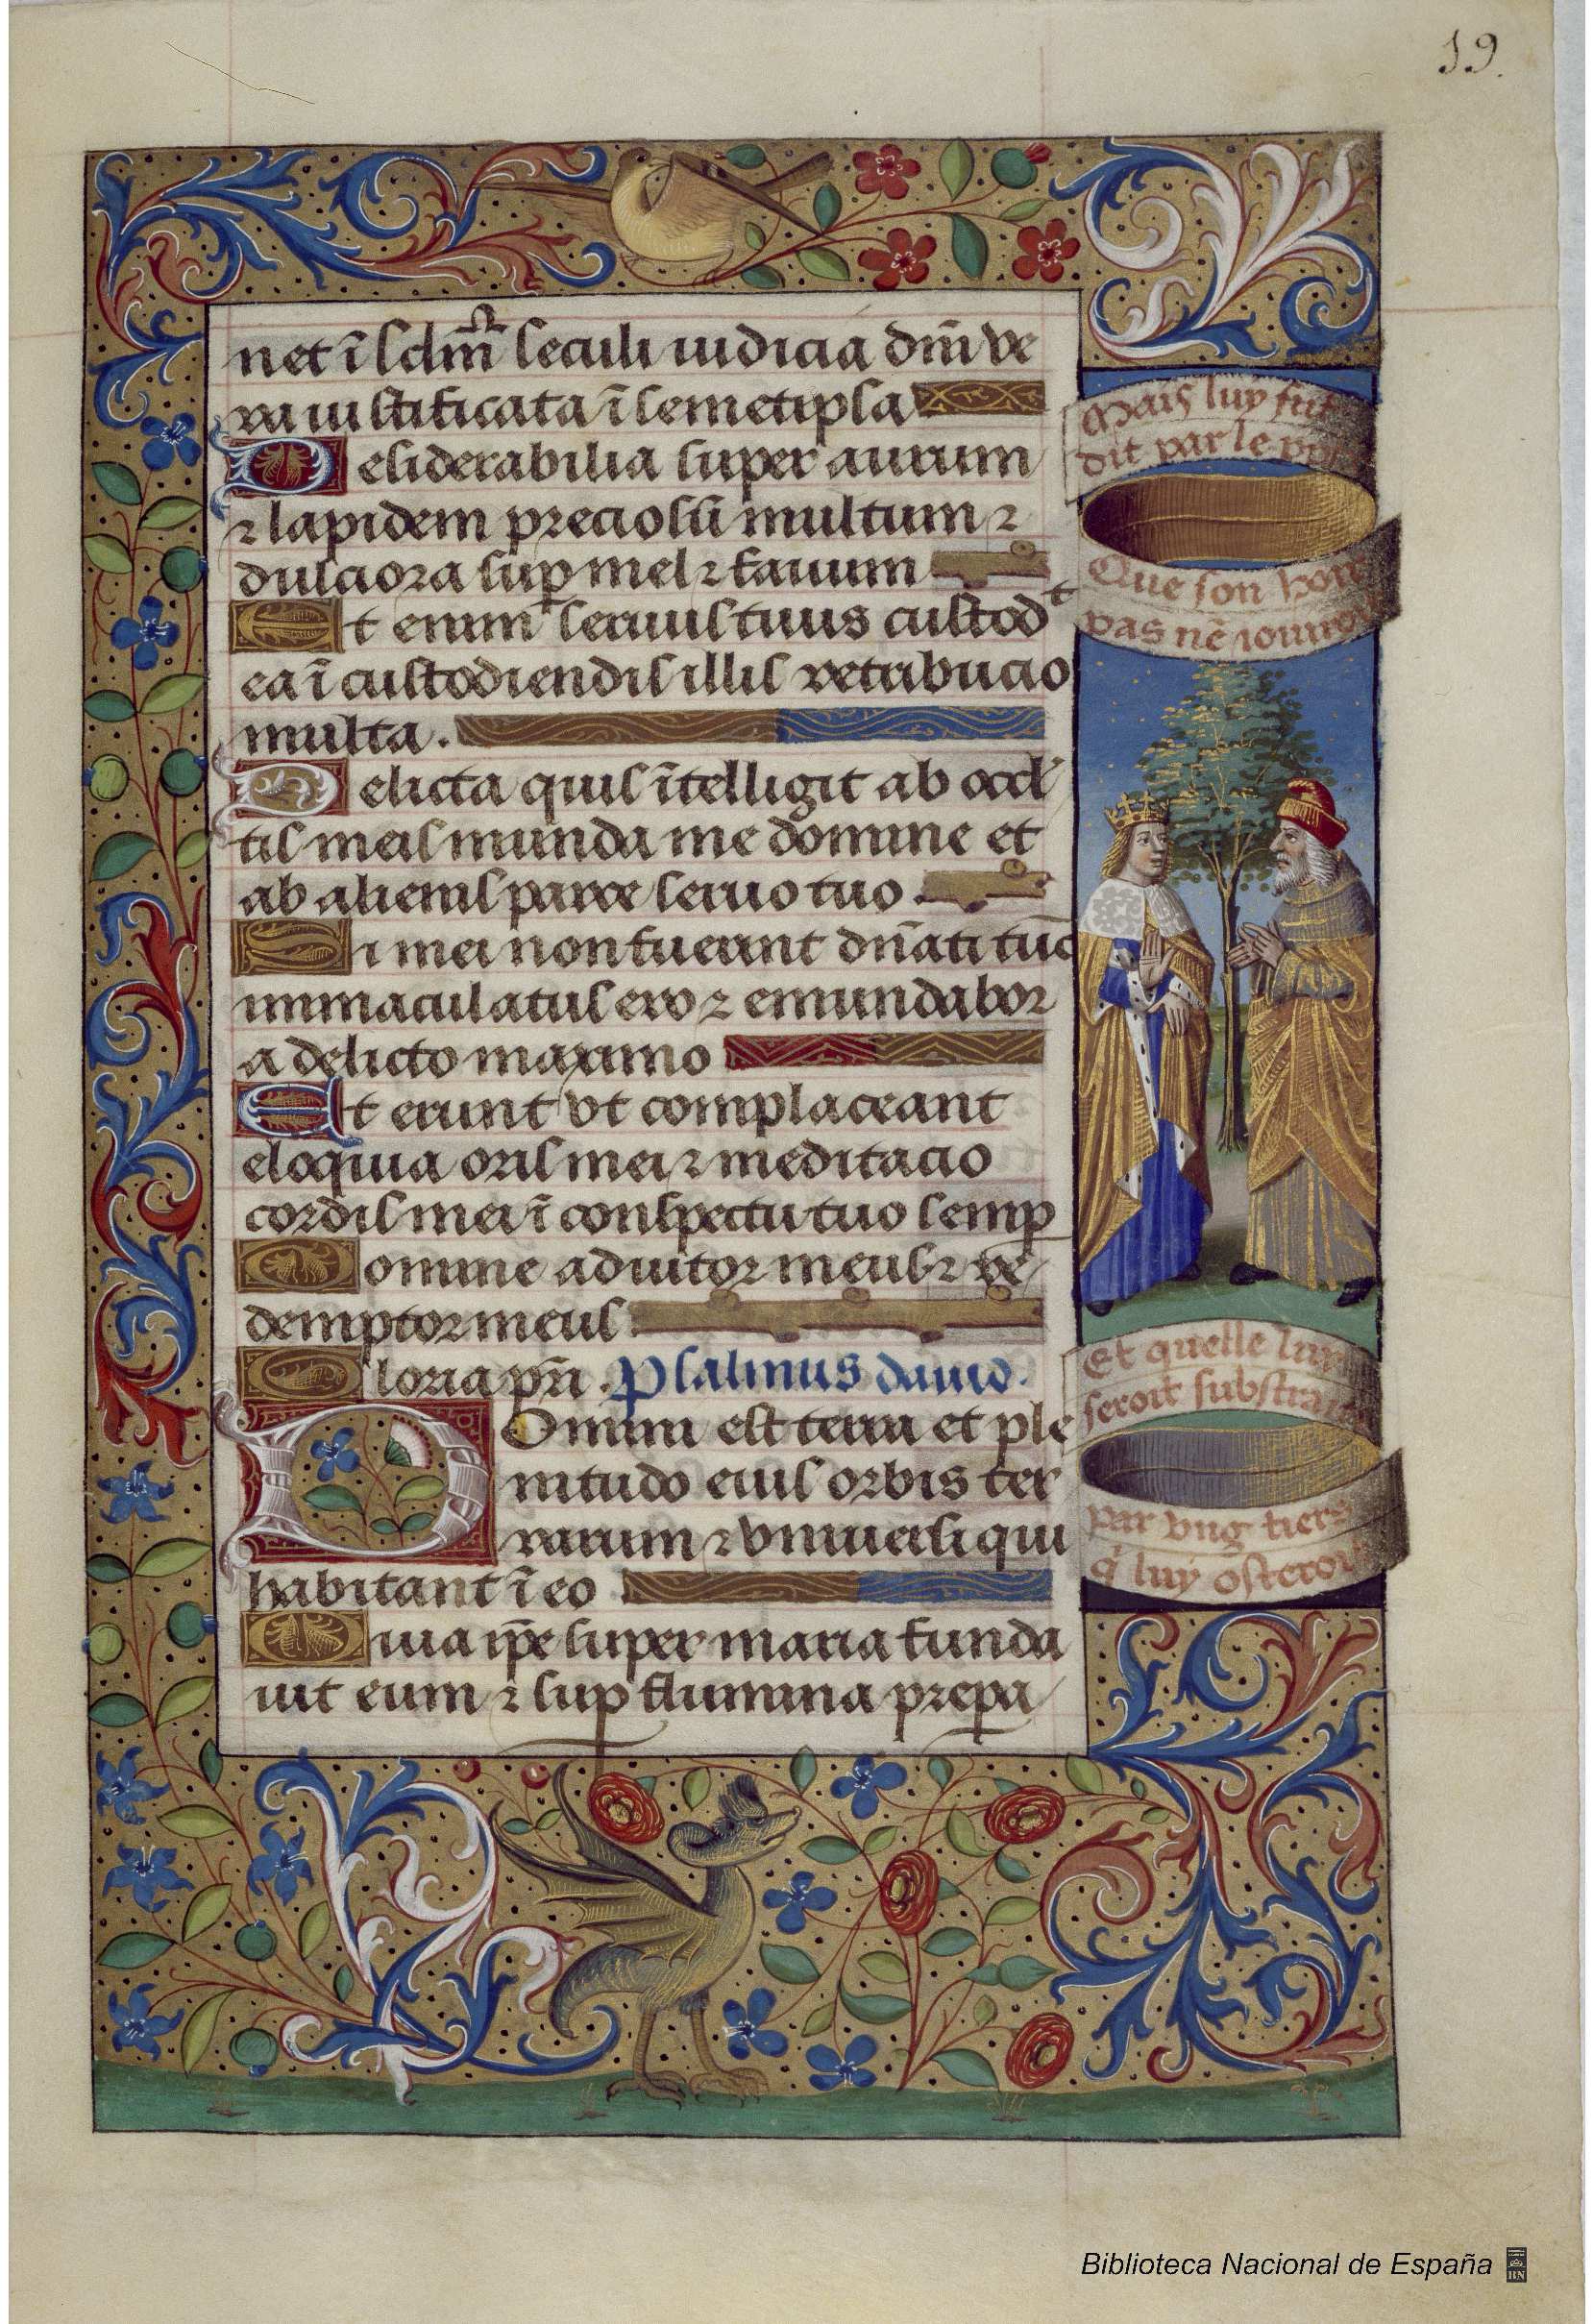 19.
net ī scl̄m seculi iudicia dn̄i ve
ra iustificata ī semetipsa
Desiderabilia super aurum
⁊ lapidem preciosū multum ⁊
dulciora sup mel ⁊ fauum
Et enim seruus tuus custodᵗ
ea ī custodiendis illis retribucio
multa.
Delicta quis ītelligit ab occl'
tis meis munda me domine et
ab alienis parce seruo tuo.
Si mei non fuerint dn̄ati tūc
immaculatus ero ⁊ emundabor
a delicto maximo
Et erunt vt complaceant
eloquia oris mei ⁊ meditacio
cordis mei ī conspectu tuo semp
Domine adiutor meus ⁊ re
demptor meus.
Gloria pr̄i. Psalmus dauid.
Domini est terra et ple
nitudo eius orbis ter
rarum ⁊ vniuersi qui
habitant ī eo
Quia ip̄e super maria funda
uit eum ⁊ sup flumina prepa
Mais luy fut
dit par le
Que son
pas nē
Et quelle luy
seroit
par vng tiers
q̄ luy osteroit
Biblioteca Nacional de España
BN